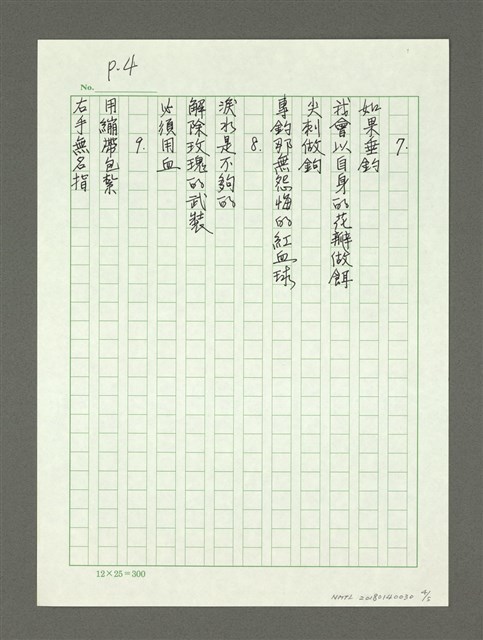 P.4
No.
7.
如果垂釣
我會以自身的花瓣做餌
尖刺做鉤
專釣那無怨悔的紅血球
8.
淚水是不夠的
解除玫瑰的武裝
必須用血
9.
用繃帶包紮
右手無名指
12×25=300
NMTL 20180140030 4/5